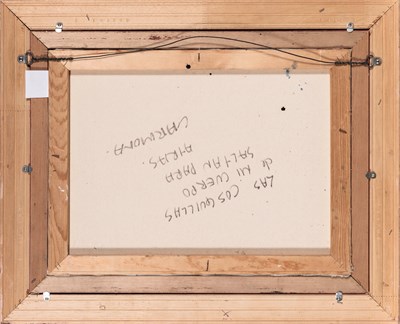 LAS COSQUILLAS
de MI CUERPO
SALTAN PARA
ATRAS.
CARMONA.